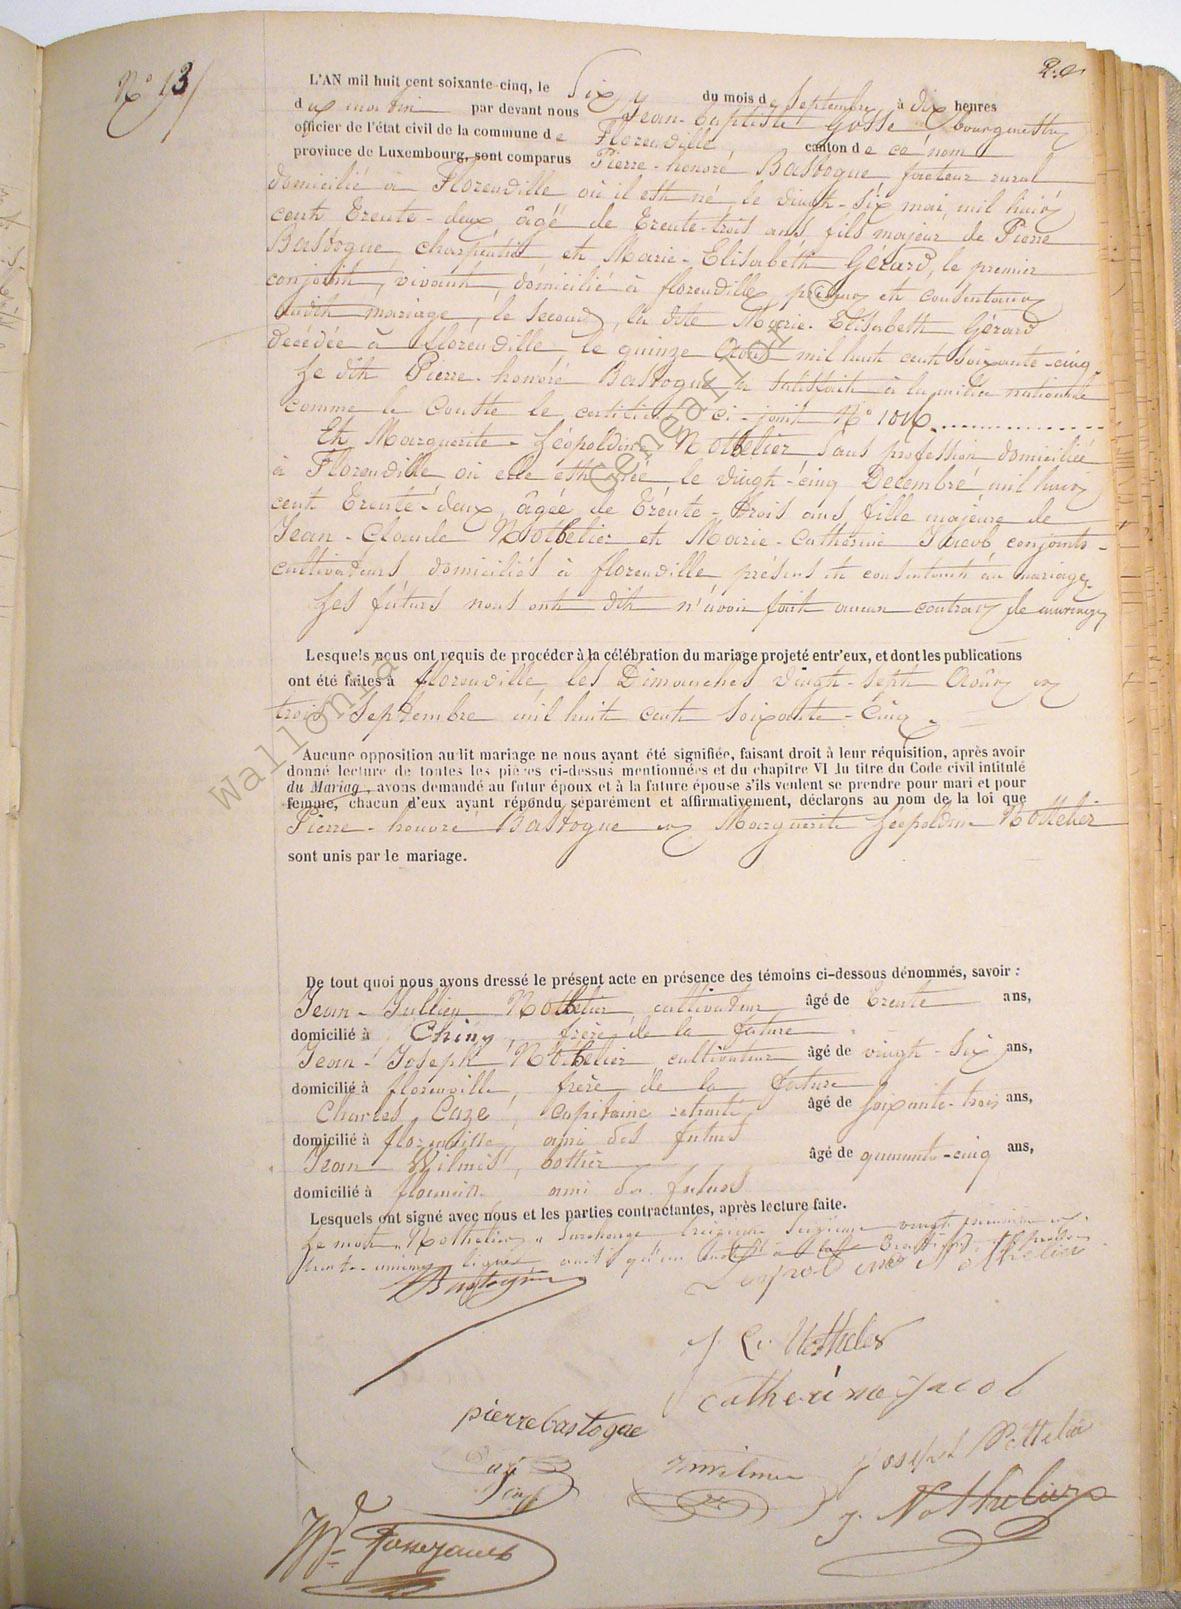 N° 13
L'AN mil huit cent soixante-cinq, le Six du mois de Septembre à dix heures
du matin par devant nous Jean-Baptiste Gosse bourgmestre
officier de l'état civil de la commune de Florenville, canton de ce nom
province de Luxembourg, sont comparus Pierre-honoré Bastogne facteur rural
domicilié à Florenville où il est né le vingt-six mai mil huit
cent trente-deux, âgé de trente-trois ans fils majeur de Pierre
Bastogne charpentier et Marie-Elisabéth Gérard, le premier
conjoint, vivant, domicilié à florenville, présent et consentant
audit mariage, le second, la dite Marie-Elisabeth Gérard
décédée à florenville le quinze Août mil huit cent soixante-cinq.
Le dit Pierre-honoré Bastogne a satisfait à la milice nationale
comme le Constte le certificat ci-joint N°
Et Marguerite-Léopoldine Nothelier Sans profession domiciliée
à Florenville où elle est née le vingt-cinq Décembre mil huit
cent trente-deux, âgée de trente-trois ans fille majeure de
Jean-Claude Nothelier et Marie-Catherine Jacob conjoints-
cultivateurs domiciliés à florenville présens et consentant au mariage.
Les futurs nous ont dit n'avoir fait aucun contrat de mariage
Lesquels nous ont requis de procéder à la célébration du mariage projeté entr'eux, et dont les publications
ont été faites à florenville, les Dimanches vingt-sept Août et
trois Septembre mil huit cent soixante-cinq.
Aucune opposition audit mariage ne nous ayant été signifiée, faisant droit à leur réquisition, après avoir
donné lecture de toutes les pièces ci-dessus mentionnées et du chapitre VI du titre du Code civil intitulé
du Mariage, avons demandé au futur époux et à la future épouse s'ils veulent se prendre pour mari et pour
femme, chacun d'eux ayant répondu séparément et affirmativement, déclarons au nom de la loi que
Pierre-honoré Bastogne et Marguerite Léopoldine Nothelier
sont unis par le mariage.
De tout quoi nous avons dressé le présent acte en présence des témoins ci-dessous dénommés, savoir :
Jean-Jullien Nothelier cultivateur âgé de trente ans,
domicilié à Chiny, frère de la future
Jean-Joseph Nothelier cultivateur âgé de vingt-six ans,
domicilié à florenville frère de la future
Charles Cazé, capitaine retraité âgé de soixante-trois ans,
domicilié à florenville ami des futurs
Jean Wilmès, bottier âgé de quarante-cinq ans,
domicilié à florenville ami des futurs
Lesquels ont signé avec nous et les parties contractantes, après lecture faite.
Le mot "Nothelier" surchargé treizième seizième vingt
lignes
Bastogne
Léopoldine Nothelier
J. C. Nothelier
catherine jacob
pierre bastogne
Cazé
Joseph Nothelier
J. Nothelier
Wallonia
Généalogie